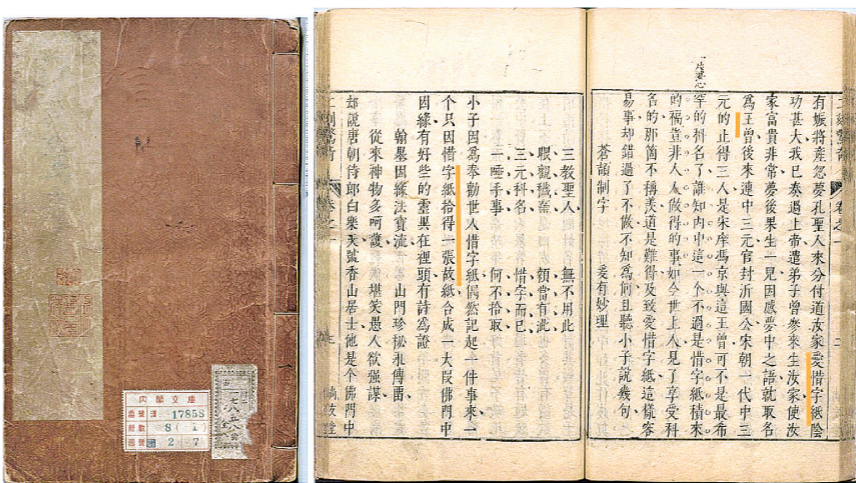 内閣文庫
17858
8 ( 1 )
2 7
二刻驚奇 卷之一
有娠將產忽夢孔聖人來分付道汝家愛惜字紙陰
功甚大我已奏過上帝遣弟子曾參來生汝家使汝
家富貴非常夢後果生一兒因感夢中之語就取名
為王曾後來連中三元官封沂國公宋朝一代中三
元的止得三人是宋庠馮京與這王曾可不是最希
罕的科名了誰知內中這一个不過是惜字紙積來
的福豈非人人做得的事如今世上人見了享受科
名的那箇不稱羨道是難得及致愛惜字紙這樣容
易事却錯過了不做不知為何且聽小子說幾句
蒼頡制字 爰有妙理
三教聖人 無不用此
眼觀穢棄 顙當有泚
三元科名 惜字而已
一唾手事 何不拾取
小子因為奉勸世人惜字紙偶然記起一件事來一
个只因惜字紙拾得一張故紙合成一大段佛門中
因緣有好些的靈異在裡頭有詩為證
翰墨因緣法寶流 山門珍秘永傳留
從來神物多呵護 堪笑愚人欲强謀
却說唐朝侍郎白樂天號香山居士他是个佛門中
二刻驚奇 卷之一 尚友堂